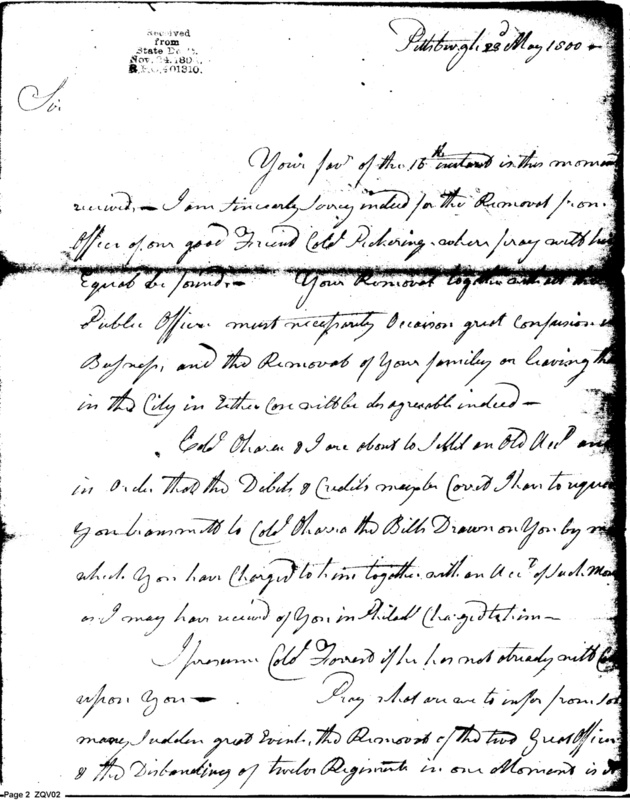 Received
from
State De
Nov. 24. 189
Pittsburgh 23d May 1800
Sir
Your favr of the 16th instant is this moment
received,— I am Sincerely Sorry indeed for the Removal from
Office of our good Friend Cold Pickering. where pray will his
Equal be found,— Your Removal together with all the
Public Offices must necessarily Occaison great Confusion in
Business, and the Removal of Your families or leaving them
in the City in Either Case will be disagreable indeed—
Cold Oharra & I are about to Settle an Old Acct and
in Order that the Debits & Credits may be Correct I have to request
You transmitt to Cold Oharra the Bills Drawn on You by me
which You have Charged to him together with an Acct of Such Monies
as I may have receivd of You in Philad Charged to him—
I presume Cold Forrest if he has not already will Call
upon You— Pray what are we to infer from So
many Sudden great Events, the Removal of the two Great Officers
& the Disbanding of twelve Regiments in one Moment is
Page 2 ZQV02